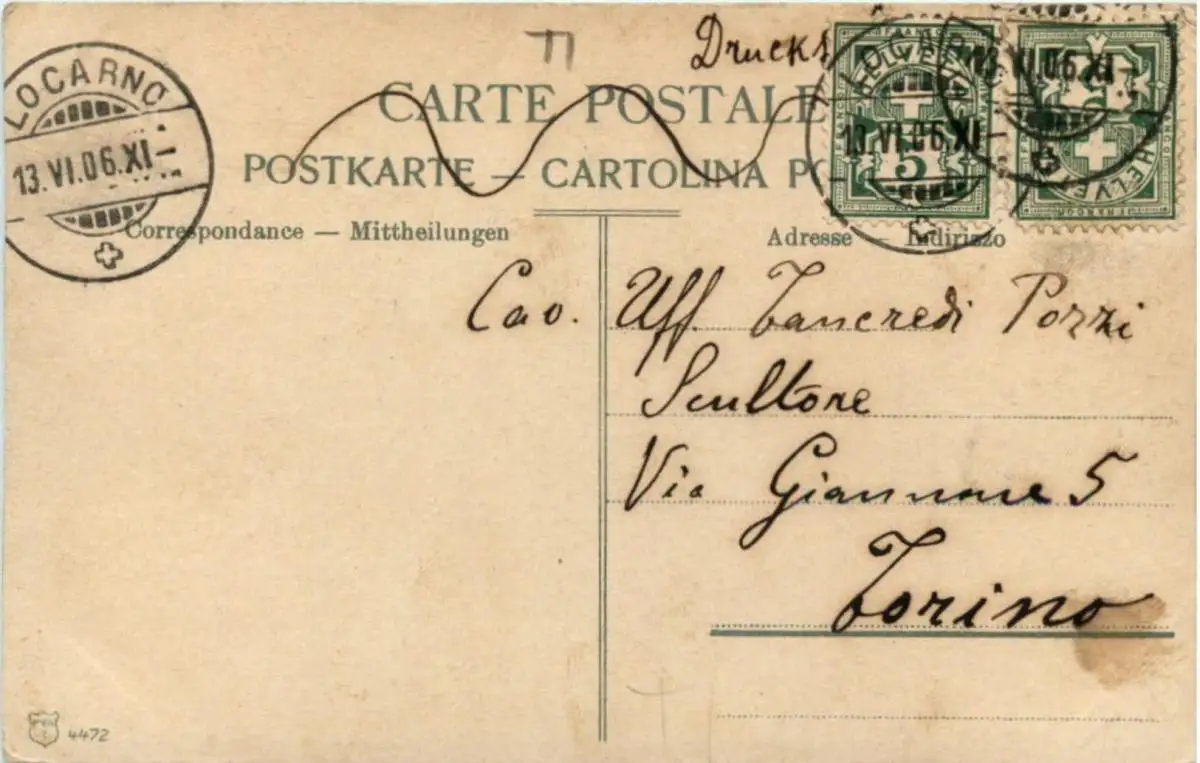 Drucks
CARTE POSTALE
POSTKARTE — CARTOLINA PO
Correspondance — Mittheilungen
Adresse — Indirizzo
LOCARNO
13.VI.06.XI—
LOCARNO
13.VI.06.XI
13.VI.06.XI
HELVETIA
5
HELVETIA
Cav. Uff. Tancredi Pozzi
Scultore
Via Giannone 5
Torino
4472